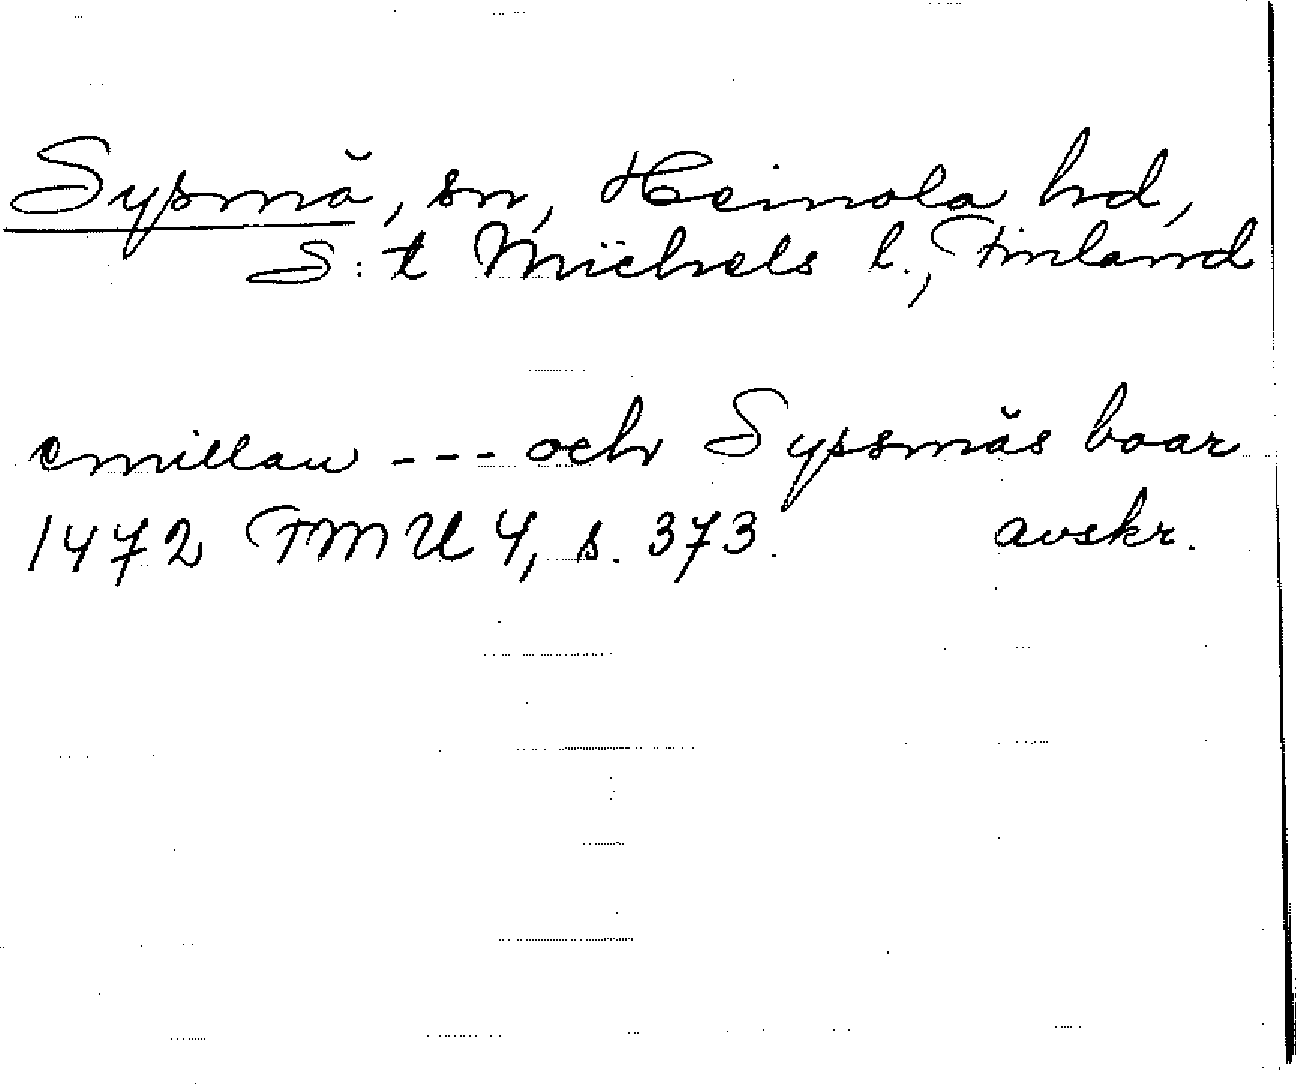 Sysmä, sn, Heinola hd,
S:t Michels l., Finland
emillan --- och Sypsmäs boar
1472 FMU 4, s. 373. avskr.